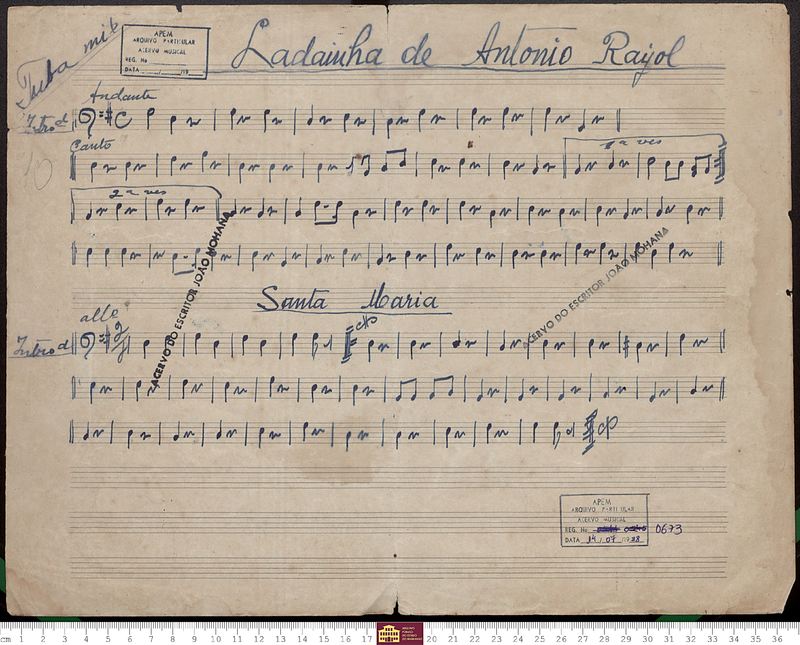 Tuba mib
APEM
ARQUIVO PARTICULAR
ACERVO MUSICAL
REG. No
DATA / /19
Ladainha de Antonio Rayol
Andante
Introd
Canto
1ª ves
2ª ves
ACERVO DO ESCRITOR JOÃO MOHANA
ACERVO DO ESCRITOR JOÃO MOHANA
Santa Maria
allo
Introd
APEM
ARQUIVO PARTICULAR
ACERVO MUSICAL
REG. No 0673
DATA 14/07/1938
cm 1 2 3 4 5 6 7 8 9 10 11 12 13 14 15 16 17 20 21 22 23 24 25 26 27 28 29 30 31 32 33 34 35 36